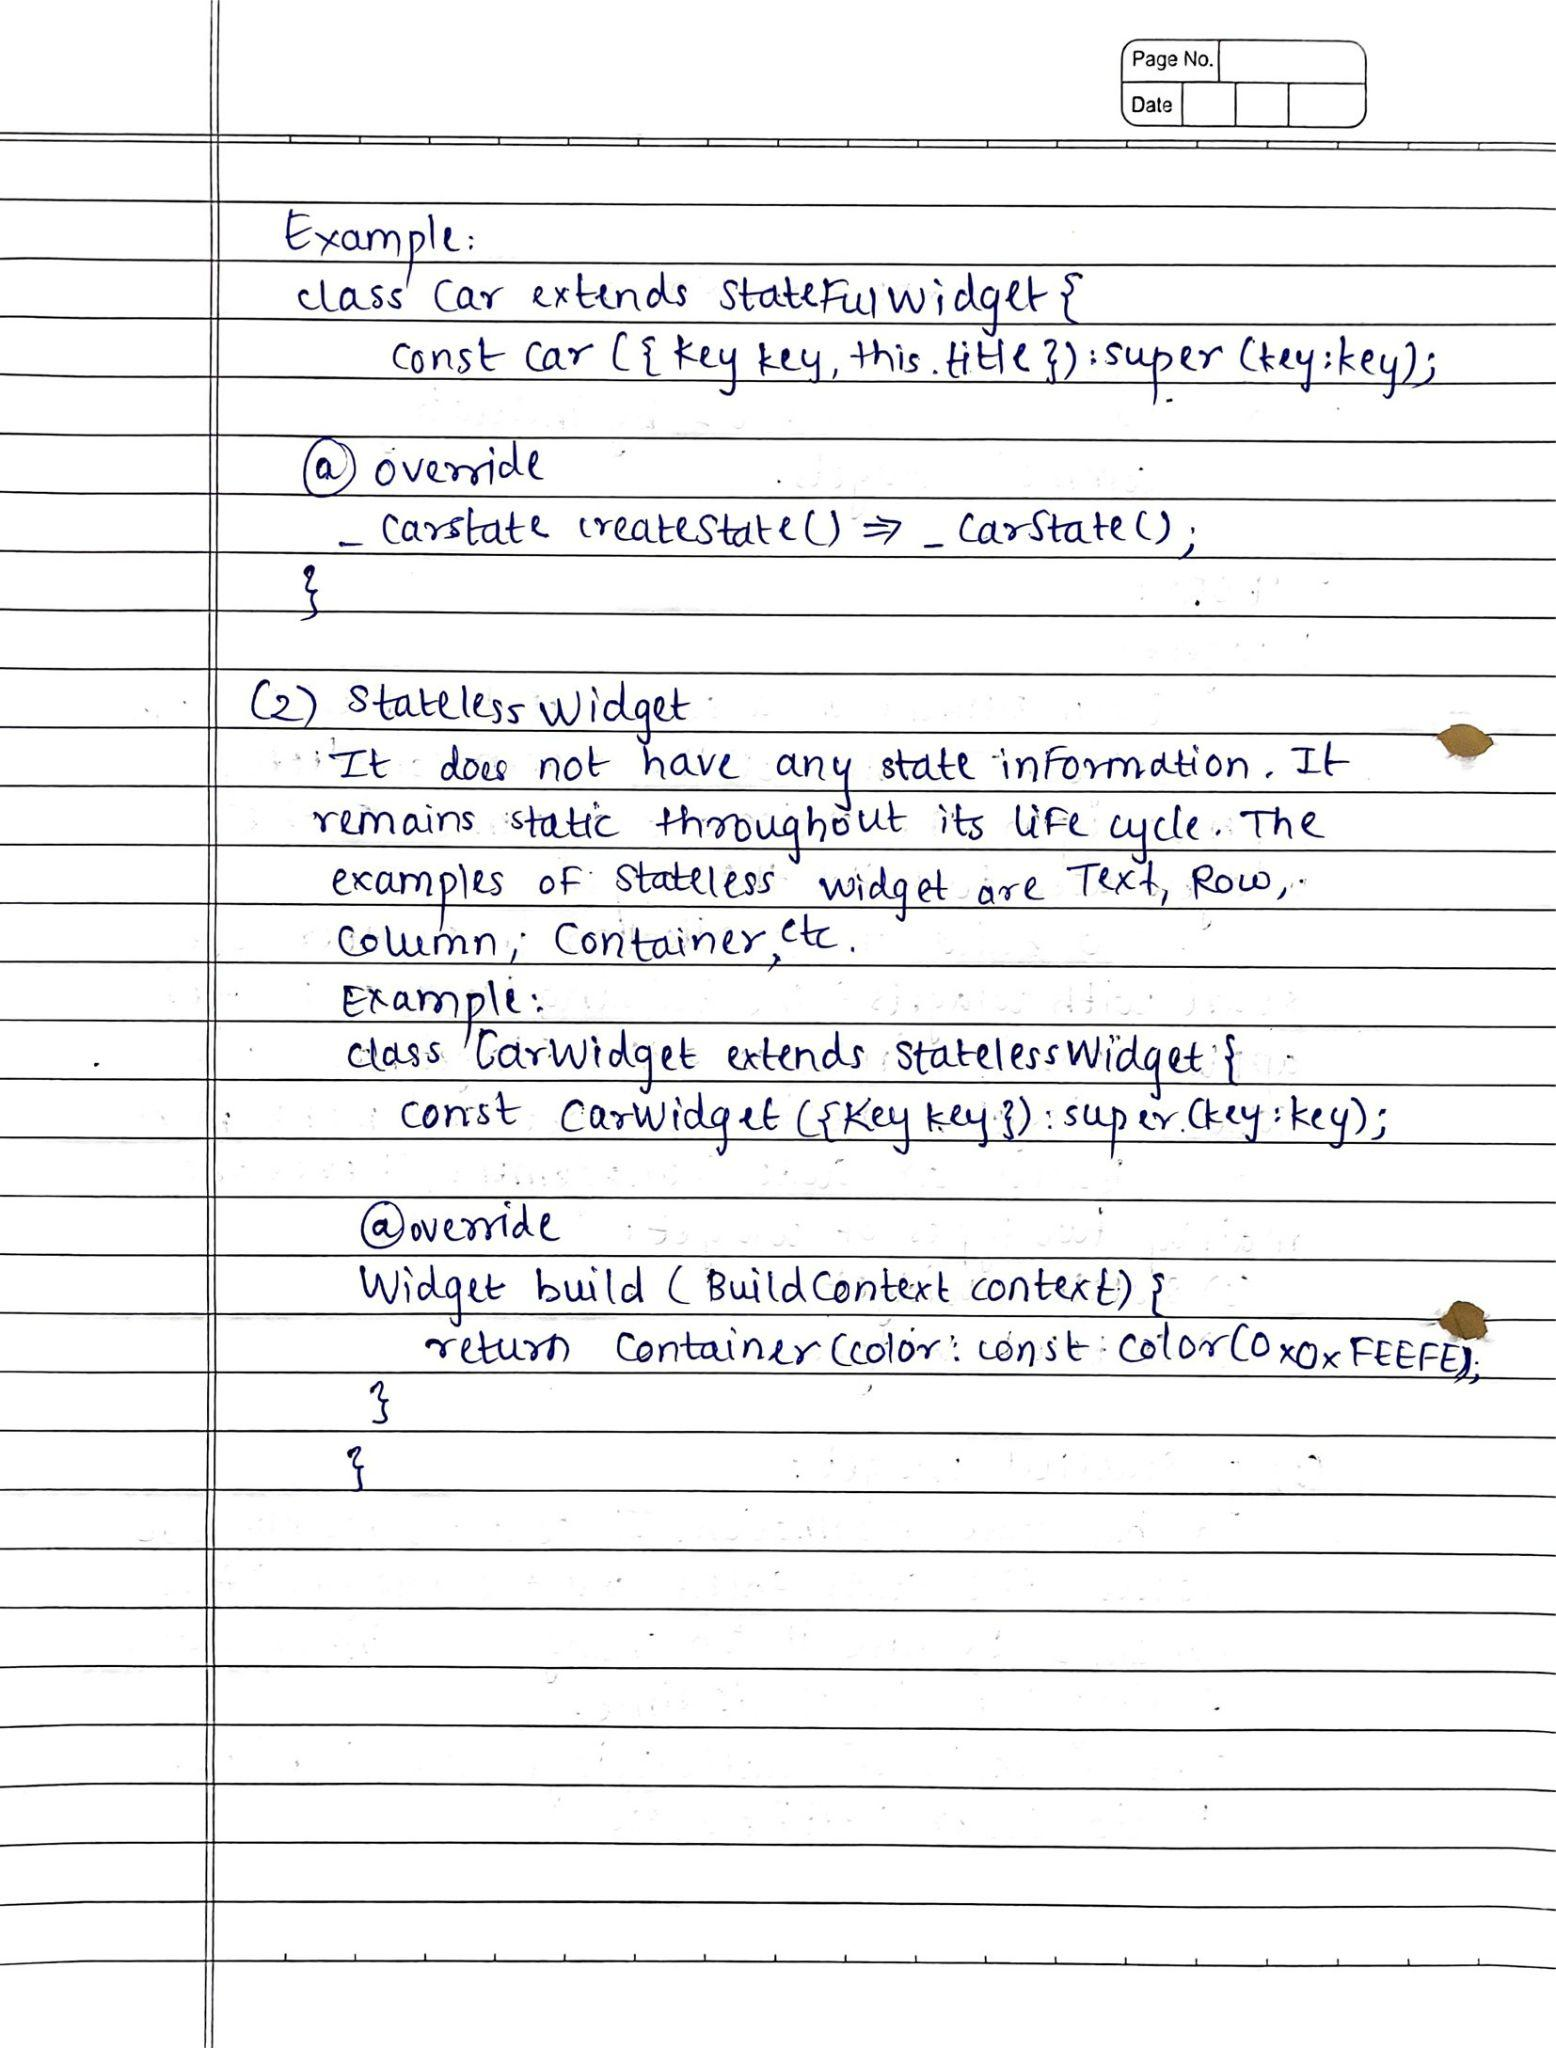 Page No.
Date
Example:
class Car extends StateFulWidget {
const Car ({ Key key, this.title }) : super (key:key);
@ override
_ CarState createState() => _ CarState();
}
(2) Stateless Widget
It does not have any state information. It
remains static throughout its life cycle. The
examples of stateless widget are Text, Row,
Column, Container, etc.
Example:
class CarWidget extends StatelessWidget {
const CarWidget ({Key key }) : super.(key:key);
@override
Widget build ( BuildContext context) {
return Container (color: const color(0x0xFEEFE);
}
}